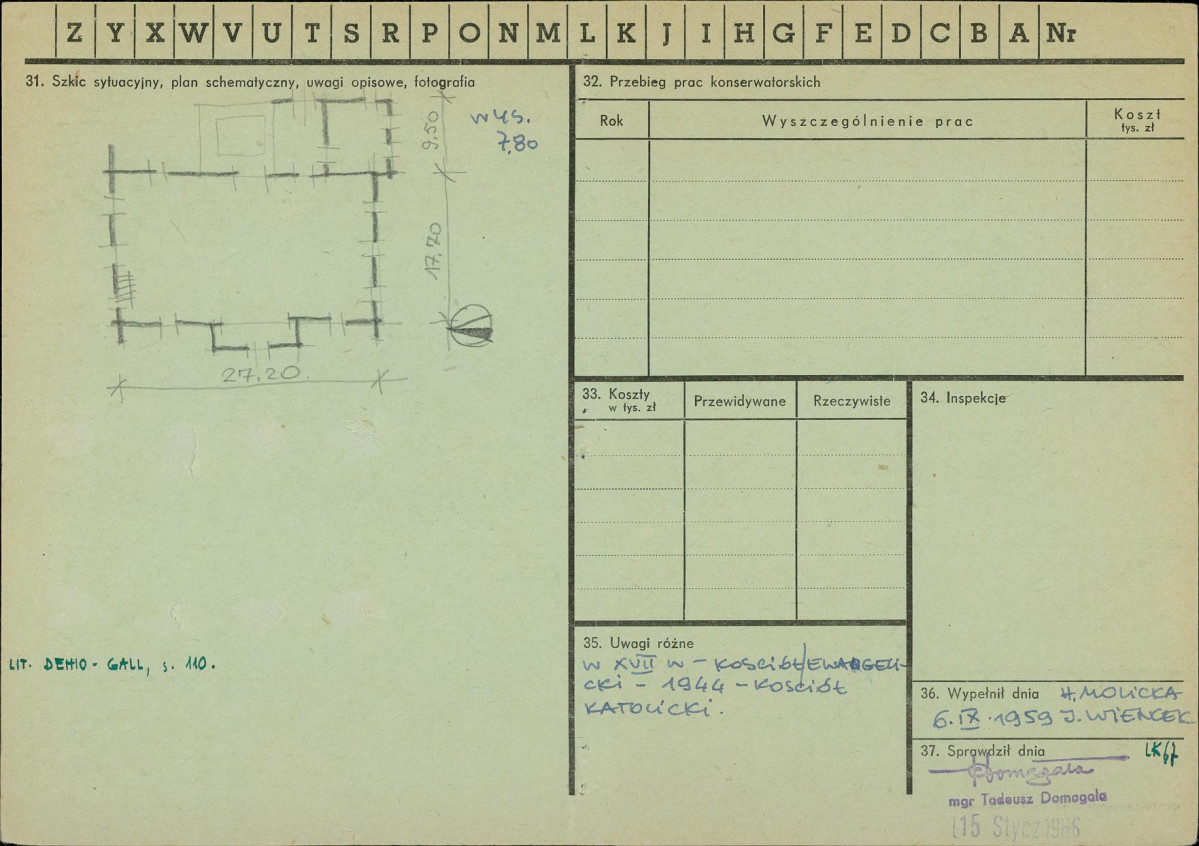 Z Y X W V U T S R P O N M L K J I H G F E D C B A Nr
31. Szkic sytuacyjny, plan schematyczny, uwagi opisowe, fotografia
wys.
7,80
9,50
17,70
27,20
LIT. DEHIO - GALL, s. 110.
32. Przebieg prac konserwatorskich
Rok Wyszczególnienie prac Koszt
tys. zł
33. Koszty
w tys. zł
Przewidywane Rzeczywiste
34. Inspekcje
35. Uwagi różne
W XVII W - KOŚCIÓŁ EWANGELI-
CKI - 1944 - KOŚCIÓŁ
KATOLICKI.
36. Wypełnił dnia H. MOLICKA
6. IX. 1959 J. WIENCEK
37. Sprawdził dnia
Domagała
mgr Tadeusz Domagała
15 Stycz 1966